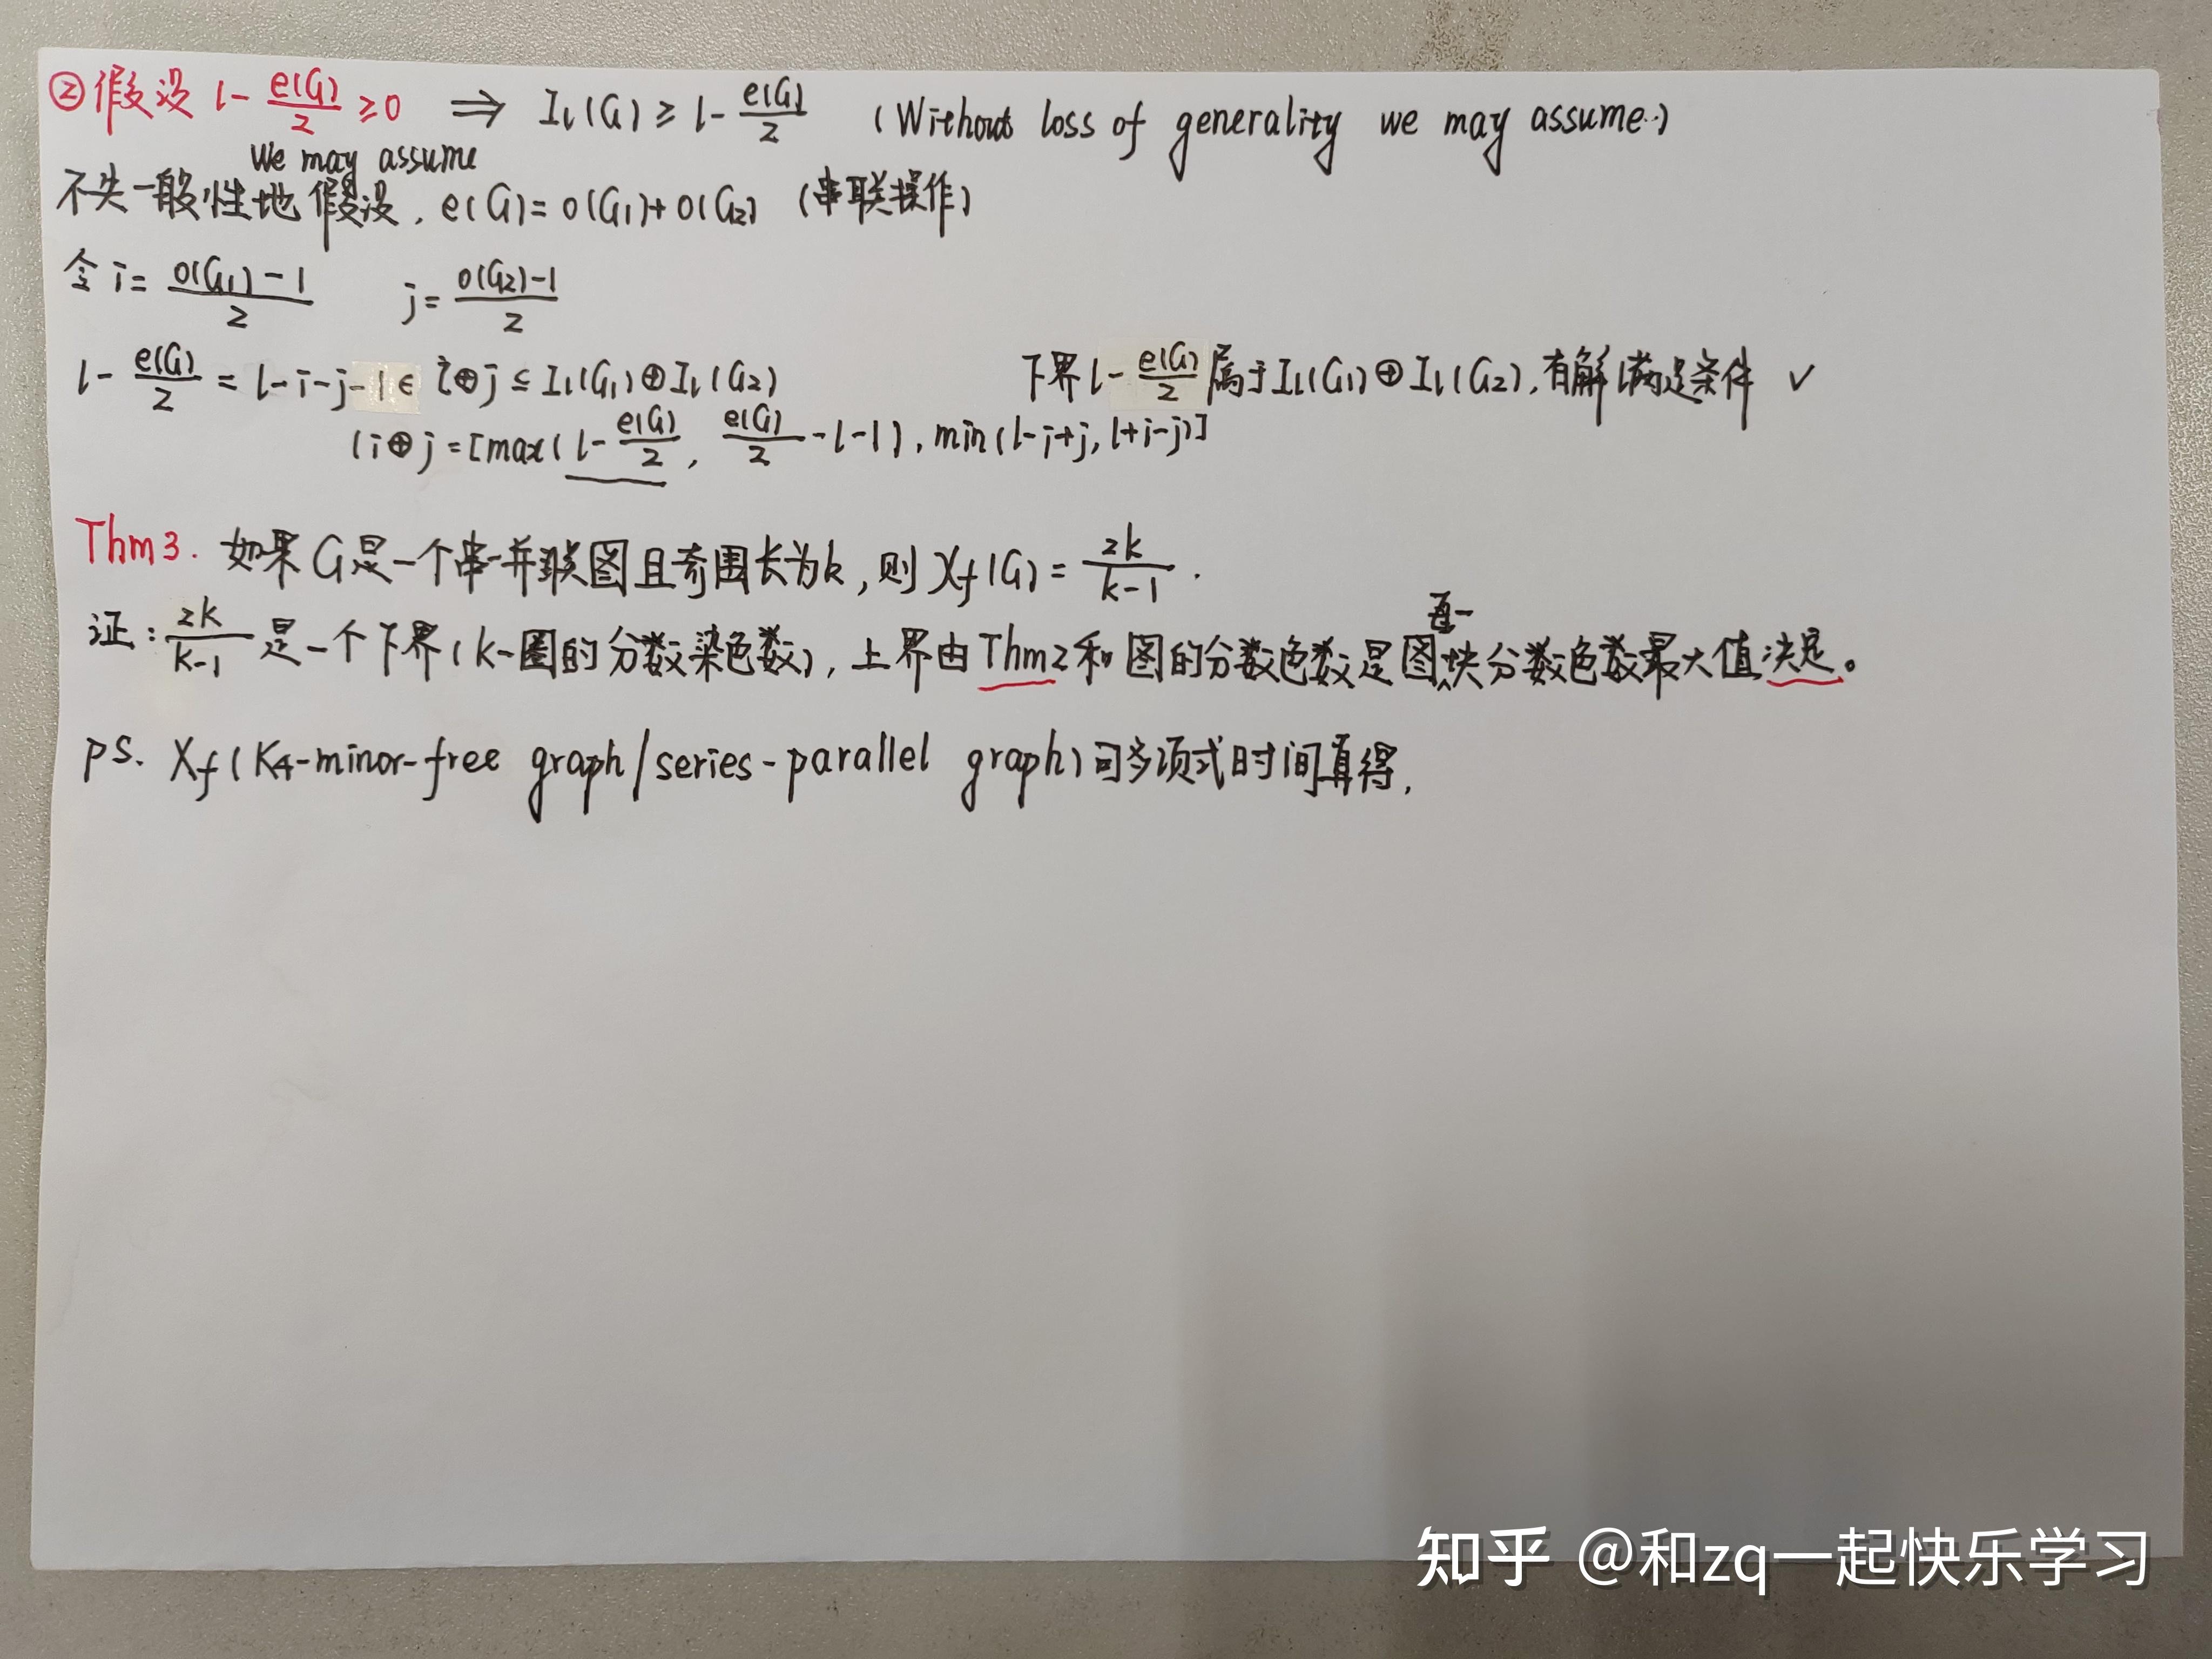 ②假设 l - e(G)/2 ≥0 ⇒ I_l(G) ≥ l - e(G)/2 (Without loss of generality we may assume..)
We may assume
不失一般性地假设, e(G) = o(G₁)+o(G₂) (串联操作)
令 i = (o(G₁)-1)/2 j = (o(G₂)-1)/2
l - e(G)/2 = l-i-j-1 ∈ i⊕j ⊆ I_l(G₁)⊕I_l(G₂) 下界 l - e(G)/2 属于 I_l(G₁)⊕I_l(G₂), 有解满足条件 ✓
(i⊕j = [max(l - e(G)/2, e(G)/2 -l-1), min(l-i+j, l+i-j)]
Thm3. 如果G是一个串-并联图且奇围长为k, 则 χ_f(G) = 2k/(k-1).
证: 2k/(k-1) 是一个下界(k-圈的分数染色数), 上界由Thm2和图的分数色数是图块分数色数最大值决定。
ps. χ_f(K₄-minor-free graph/series-parallel graph)可多项式时间算得.
知乎 @和zq一起快乐学习